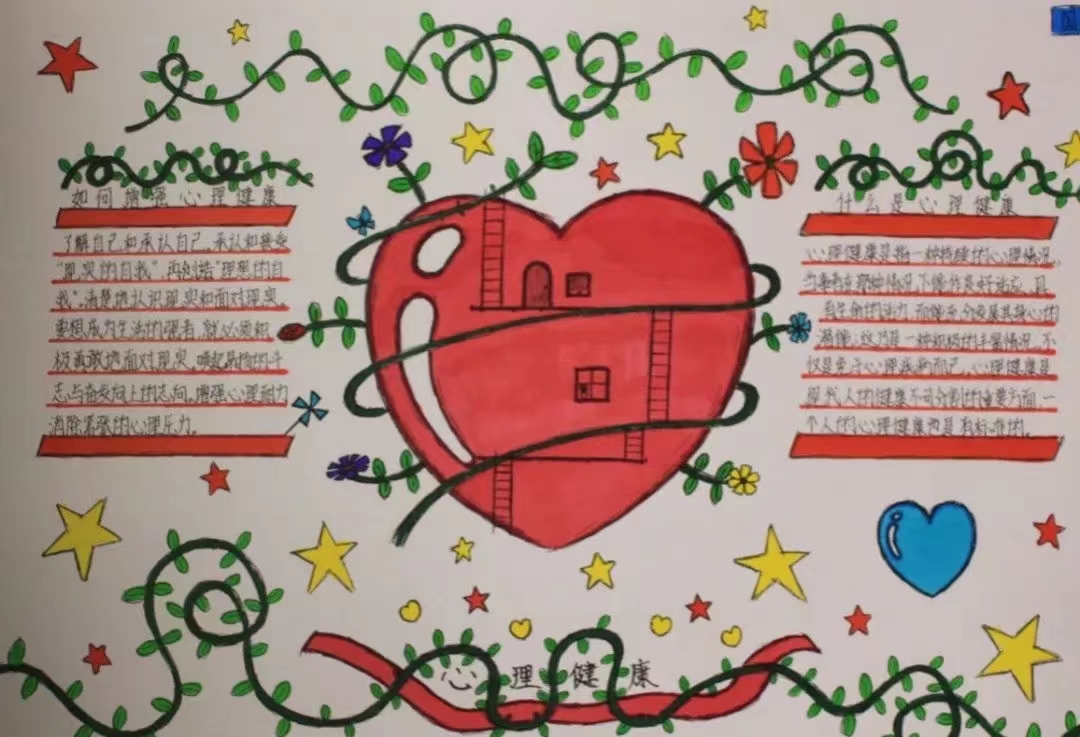 如何增强心理健康
了解自己和承认自己,承认和接受
"现实的自我",再创造"理想的自
我",清楚地认识现实和面对现实。
要想成为生活的强者,就必须积
极勇敢地面对现实,唤起昂扬的斗
志与奋发向上的志向,增强心理耐力
消除紧张的心理压力。
什么是心理健康
心理健康是指一种持续的心理情况,
当事者在那种情况下能作良好适应,具
有生命的活力,而能充分发展其身心的
潜能,这乃是一种积极的丰富情况,不
仅是免于心理疾病而已,心理健康是
现代人的健康不可分割的重要方面,一
个人的心理健康也是有标准的。
理健康